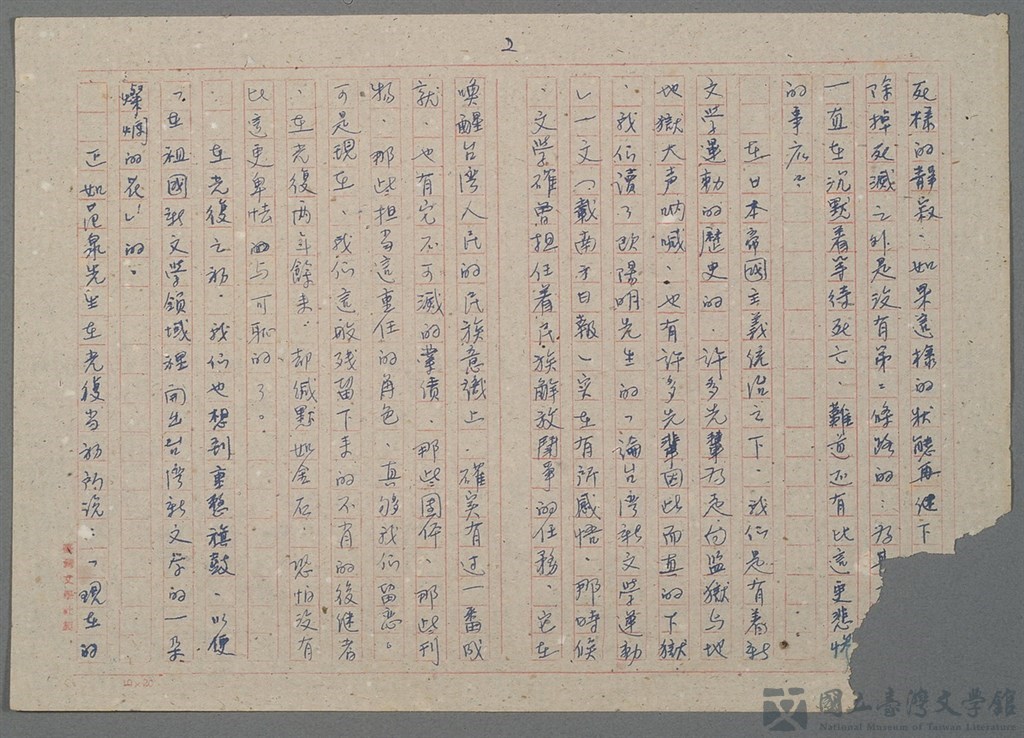 2
死樣的靜寂、如果這樣的狀態再继下
除掉死滅之外是沒有第二條路的：為甚
一直在沉默着等待死亡、難道还有比這更悲惨
的事底？
在日本帝國主義統治之下、我们是有着新
文学運動的歷史的、許多先輩為走向監獄与地
地獄大声吶喊、也有許多先輩因此而真的下獄
、我们讀了欧陽明先生的「論台湾新文学運動
」一文（載南方日報）实在有所感悟、那時候
、文学確曾担任着民族解放鬪爭的任務、它在
喚醒台湾人民的民族意識上、確实有过一番成
就、也有完不可滅的業債、那些團体、那些刊
物、那些担当這重任的角色、真够我们留恋。
可是現在、我们這般残留下来的不肖的後继者
、在光復両年餘来、却缄默如金石、恐怕没有
比這更卑怯的与可恥的了。
在光復之初、我们也想到重整旗鼓、以便
「在祖國新文学領域裡開出台湾新文学的一朵
燦爛的花」的。
正如范泉先生在光復当初所说：「現在的
國立臺灣文學館
National Museum of Taiwan Literature